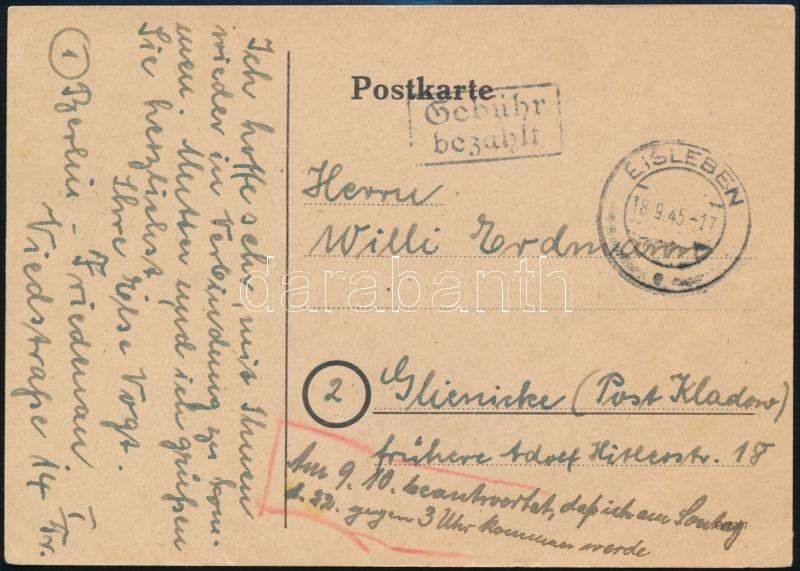 Ich hoffe sehr, mit Ihnen
wieder in Verbindung zu kom-
men. Mutter und ich grüßen
Sie herzlichst
Ihre Else Vogt.
① Berlin - Friedenau
Niedstraße 14 I Tr.
Postkarte
Gebühr
bezahlt
EISLEBEN
18.9.45-17
e
Herrn
Willi Erdmann
darabanth
2
Glienicke (Post Kladow)
frühere Adolf Hitlerstr. 18
Am 9.10. beantwortet, daß ich am Sonntag
d. 22. gegen 3 Uhr kommen werde